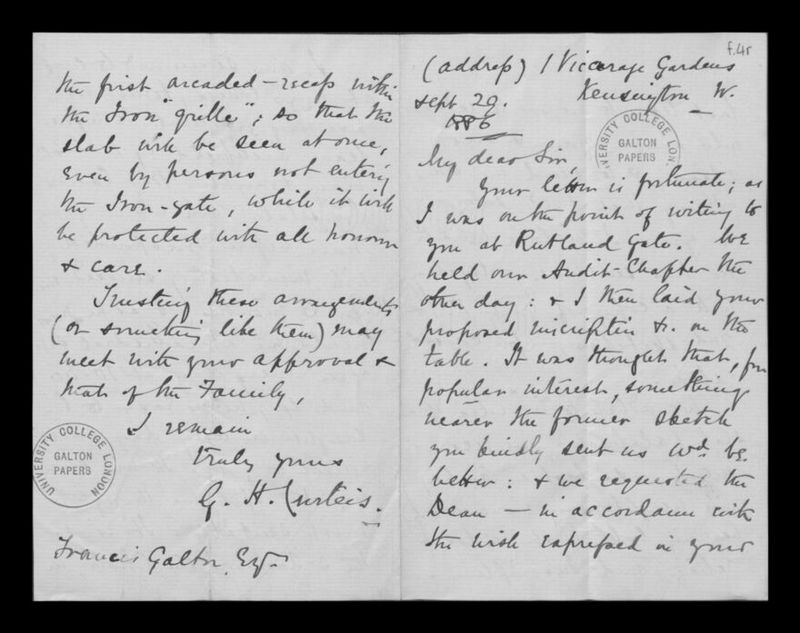 f.4r
(address) 1 Vicarage Gardens
Kensington W.
Sept 29.
1886
My dear Sir,
Your letter is fortunate; as
I was on the point of writing to
you at Rutland Gate. We
held our Audit-Chapter the
other day: & I then laid your
proposed inscription &c. on the
table. It was thought that, for
popular interest, something
nearer the former sketch
you kindly sent us wd. be
better: & we requested the
Dean — in accordance with
the wish expressed in your
the first arcaded-recess within
the Iron "grille"; so that the
slab will be seen at once,
even by persons not entering
the Iron-gate, while it will
be protected with all honour
& care.
Trusting these arrangements
(or something like them) may
meet with your approval &
that of the Family,
I remain
truly yours
G. H. Curteis.
Francis Galton Esq.
UNIVERSITY COLLEGE LONDON
GALTON
PAPERS
UNIVERSITY COLLEGE LONDON
GALTON
PAPERS